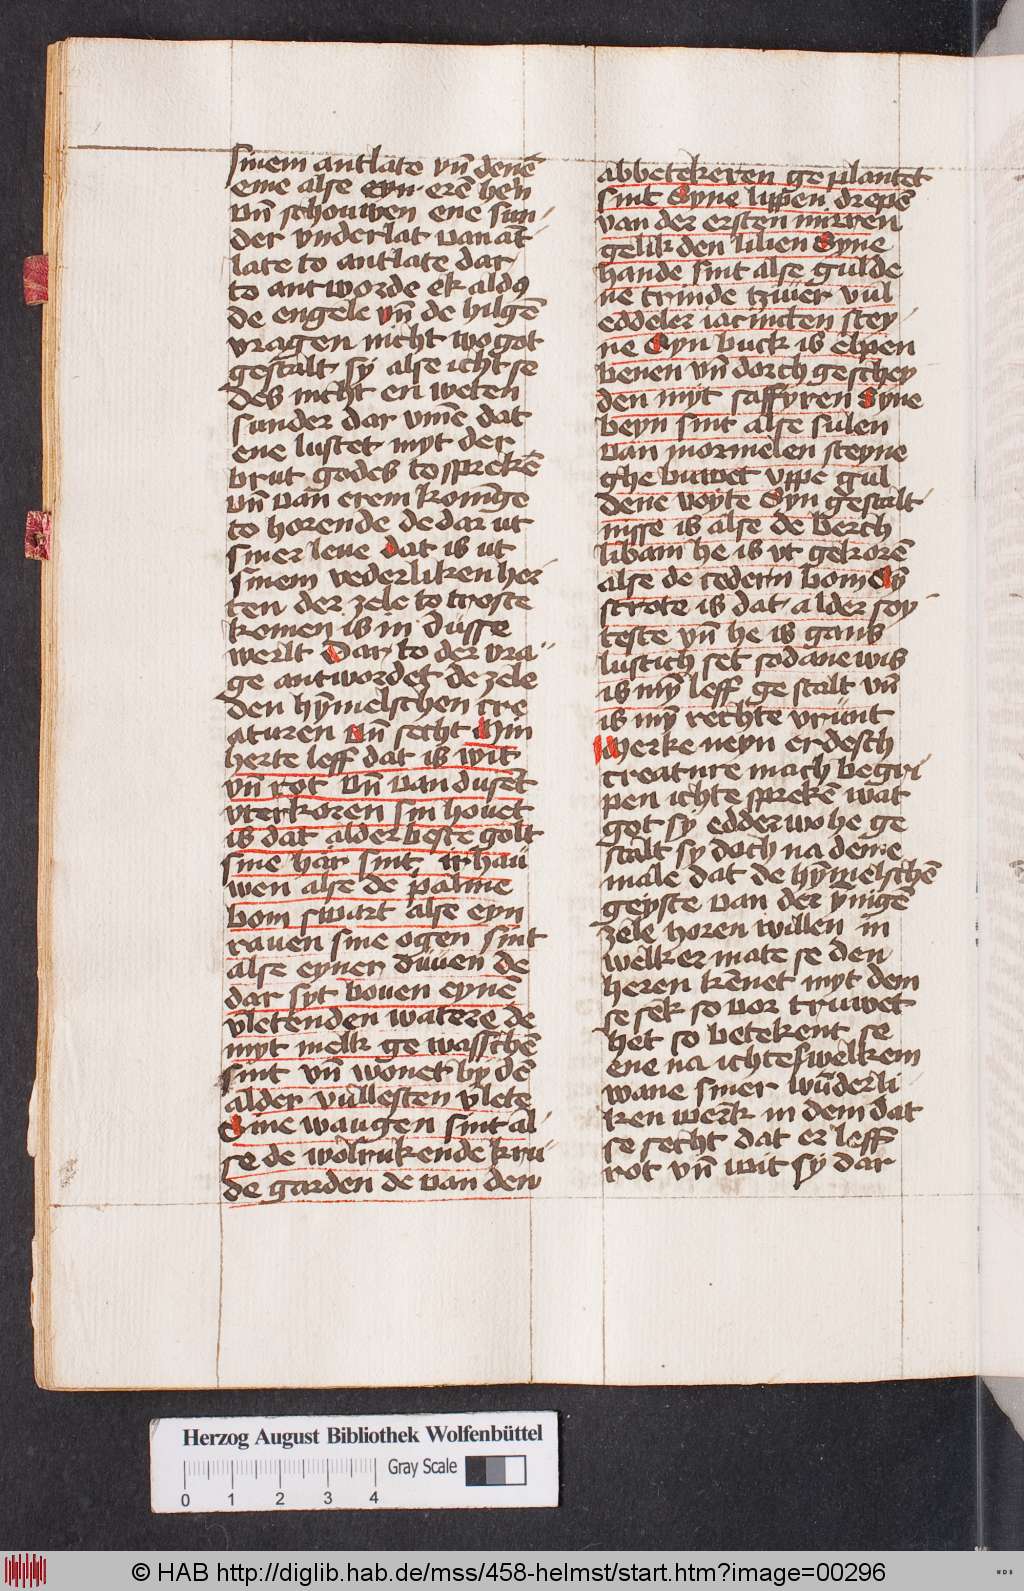 sinem antlate vn̄ denē
eme alse eyn erē heñ
vn̄ schouwen ene sun-
der vnderlat van āt
late to antlate dar
to antworde ek aldꝰ
de engele vn̄ de hilgē
vragen nicht wo got
gestalt sy alse icht se
des nicht en weten
sunder dar vm̄e dat
ene lustet myt der
brut godes to sprekē
vn̄ van erem konīge
to horende de dar ut
siner leue dat is ut
sinem vederliken her
ten der zele to troste
komen is in düsse
werlt Dar to der vra-
ge antwordet de zele
den hȳmelschen cre
aturen vn̄ secht Min
herte leff dat is wit
vn̄ rot vn̄ van dusēt
vterkoren sin houet
is dat alder beste golt
sine har sint irhau
wen alse de palme
bom swart alse eyn
rauen sine ogen sint
alse eyner duuen de
dar syt bouen eynē
vletenden watere de
myt melk ge wasschē
sint vn̄ wonet by dē
alder vullesten vlete
Sine waugen sint al
se de wolrukende kru-
de garden de van den
abbetekeren ge plantet
sint Syne lippen drepē
van der ersten mirren
gelik den lilien Syne
hande sint alse gulde
ne trinde tzwer vul
eddeler iacincten stey
ne Syn buck is elpen
benen vn̄ dorch geschey
den myt saffyren Syne
beyn sint alse sulen
van mormelen steyne
ghe buwet vppe gul
dene voyte Syn gestalt-
nisse is alse de berch
libani he is vt gekorē
alse de cederin bom Sȳ
strote is dat alder soy-
teste vn̄ he is gans
lustich set sodane wis
is mȳ leff ge stalt vn̄
is mȳ rechte vrünt
Merke neyn erdesch
creature mach begri
pen ichte sprekē wat
got sy edder wo he ge
stalt sy doch na deme
male dat de hȳmelschē
geyste van der ȳnigē
zele horen willen in
welker mate se den
heren kēnet myt dem
se sek so vor truwet
het so betekent se
ene na ichteswelkem
wane siner wūderli
ken werk in dem dat
se secht dat er leff
rot vn̄ wit sy dar
Herzog August Bibliothek Wolfenbüttel
Gray Scale
0 1 2 3 4
© HAB http://diglib.hab.de/mss/458-helmst/start.htm?image=00296